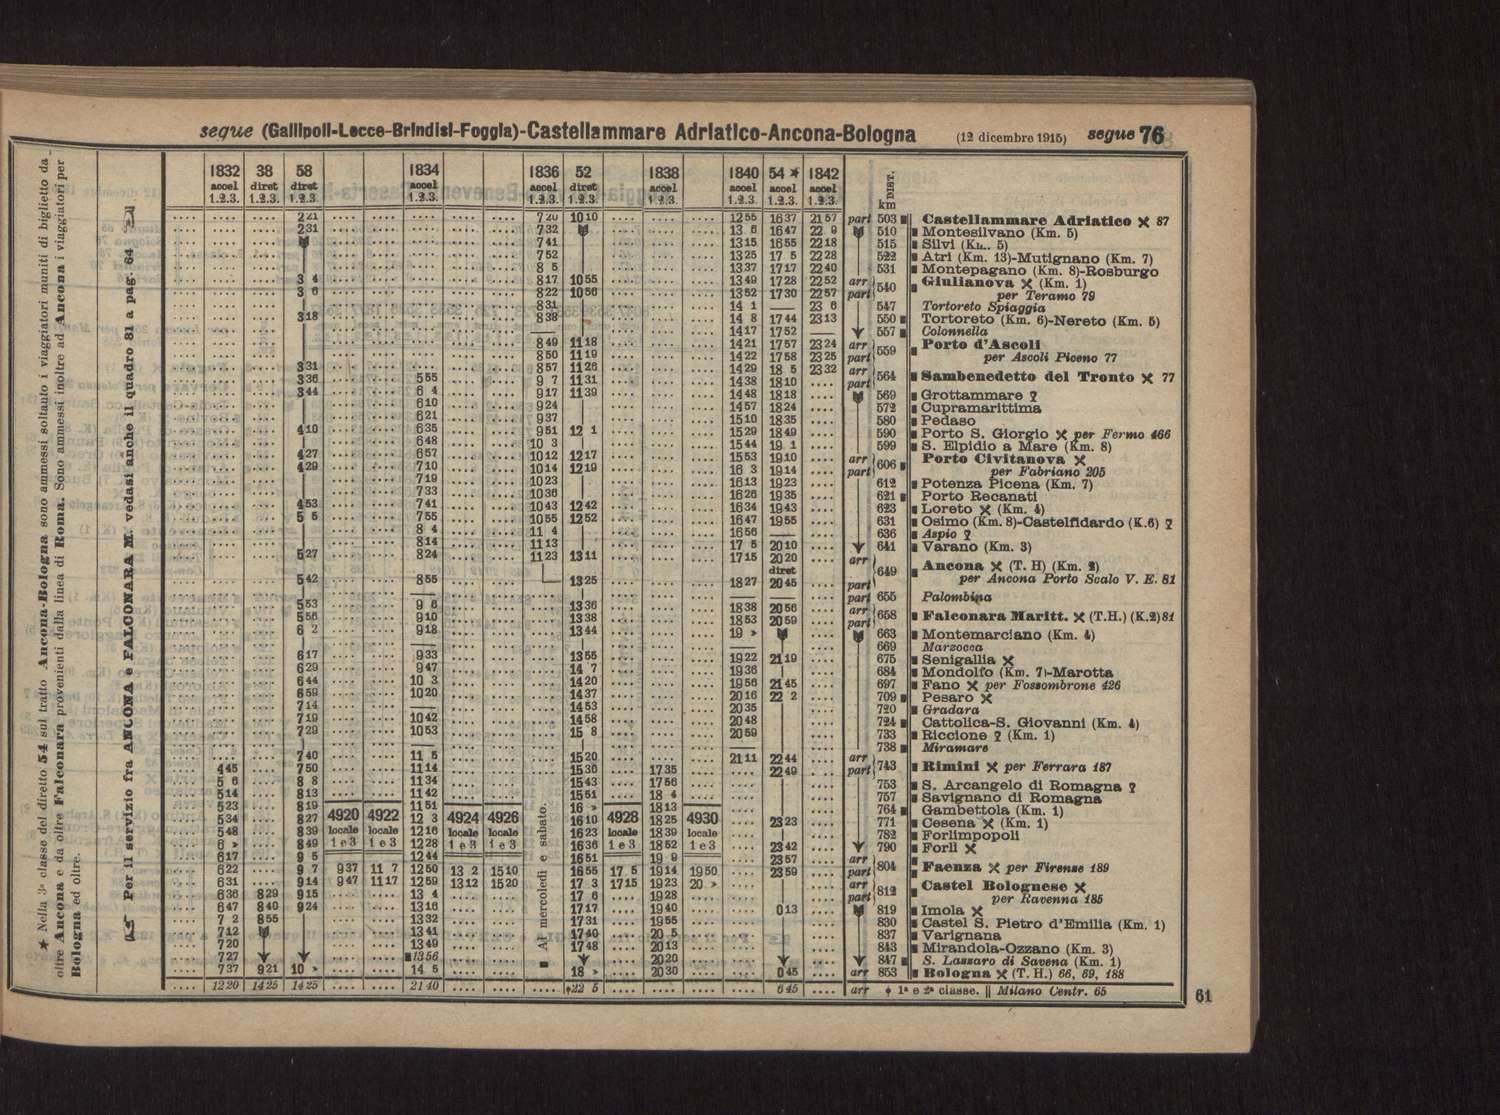 segue (Gallipoli-Lecce-Brindisi-Foggia)-Castellammare Adriatico-Ancona-Bologna (12 dicembre 1915) segue 76
★ Nella 3ª classe del diretto 54 sul tratto Ancona-Bologna sono ammessi soltanto i viaggiatori muniti di biglietto da
oltre Ancona e da oltre Falconara provenienti dalla linea di Roma. Sono ammessi inoltre ad Ancona i viaggiatori per
Bologna ed oltre.
Per il servizio fra ANCONA e FALCONARA M. vedasi anche il quadro 81 a pag. 64
1832 38 58 1834 1836 52 1838 1840 54 ★ 1842
accel diret diret accel accel diret accel accel accel accel
1.2.3. 1.2.3. 1.2.3. 1.2.3. 1.2.3. 1.2.3. 1.2.3. 1.2.3. 1.2.3. 1.2.3. km DIST.
2 21 7 20 10 10 12 55 16 37 21 57 part 503 Castellammare Adriatico 87
2 31 7 32 13 6 16 47 22 9 510 Montesilvano (Km. 5)
7 41 13 15 16 55 22 18 515 Silvi (Km. 5)
7 52 13 25 17 5 22 28 522 Atri (Km. 13)-Mutignano (Km. 7)
8 5 13 37 17 17 22 40 531 Montepagano (Km. 8)-Rosburgo
3 4 8 17 10 55 13 49 17 28 22 52 arr 540 Giulianova (Km. 1)
3 6 8 22 10 56 13 52 17 30 22 57 part per Teramo 79
8 31 14 1 — 23 6 547 Tortoreto Spiaggia
3 18 8 38 14 8 17 44 23 13 550 Tortoreto (Km. 6)-Nereto (Km. 5)
— 14 17 17 52 — 557 Colonnella
8 49 11 18 14 21 17 57 23 24 arr 559 Porto d'Ascoli
8 50 11 19 14 22 17 58 23 25 part per Ascoli Piceno 77
3 31 8 57 11 26 14 29 18 5 23 32 arr 564 Sambenedetto del Tronto 77
3 36 5 55 9 7 11 31 14 38 18 10 part
3 44 6 4 9 17 11 39 14 48 18 18 569 Grottammare
6 10 9 24 14 57 18 24 572 Cupramarittima
6 21 9 37 15 10 18 35 580 Pedaso
4 10 6 35 9 51 12 1 15 29 18 49 590 Porto S. Giorgio per Fermo 466
6 48 10 3 15 44 19 1 599 S. Elpidio a Mare (Km. 8)
4 27 6 57 10 12 12 17 15 53 19 10 arr 606 Porto Civitanova
4 29 7 10 10 14 12 19 16 3 19 14 part per Fabriano 205
7 19 10 23 16 13 19 23 612 Potenza Picena (Km. 7)
7 33 10 36 16 26 19 35 621 Porto Recanati
4 53 7 41 10 43 12 42 16 34 19 43 623 Loreto (Km. 4)
5 5 7 55 10 55 12 52 16 47 19 55 631 Osimo (Km. 8)-Castelfidardo (K.6)
8 4 11 4 16 56 — 636 Aspio
8 14 11 13 17 5 20 10 641 Varano (Km. 3)
5 27 8 24 11 23 13 11 17 15 20 20 arr 649 Ancona (T. H) (Km. 2)
diret
5 42 8 55 13 25 18 27 20 45 part per Ancona Porto Scalo V. E. 81
— — — 655 Palombina
5 53 9 6 13 36 18 38 20 56 arr 658 Falconara Maritt. (T.H.) (K.2) 81
5 56 9 10 13 38 18 53 20 59 part
6 2 9 18 13 44 19 » 663 Montemarciano (Km. 4)
— — 669 Marzocca
6 17 9 33 13 55 19 22 21 19 675 Senigallia
6 29 9 47 14 7 19 36 684 Mondolfo (Km. 7)-Marotta
6 44 10 3 14 20 19 56 21 45 697 Fano per Fossombrone 426
6 59 10 20 14 37 20 16 22 2 709 Pesaro
7 14 — 14 53 20 35 720 Gradara
7 19 10 42 14 58 20 48 724 Cattolica-S. Giovanni (Km. 4)
7 29 10 53 15 8 20 59 733 Riccione (Km. 1)
— — 738 Miramare
7 40 11 5 15 20 21 11 22 44 arr 743 Rimini per Ferrara 187
4 45 7 50 11 14 15 30 17 35 22 49 part
5 6 8 8 11 34 15 43 17 56 753 S. Arcangelo di Romagna
5 14 8 13 11 42 15 51 18 4 757 Savignano di Romagna
5 23 8 19 11 51 16 » 18 13 764 Gambettola (Km. 1)
4920 4922 4924 4926 4928 4930
locale locale locale locale locale locale
1 e 3 1 e 3 1 e 3 1 e 3 1 e 3
5 34 8 27 12 3 16 10 18 25 23 23 771 Cesena (Km. 1)
5 48 8 39 12 16 16 23 18 39 782 Forlimpopoli
6 » 8 49 12 28 16 36 18 52 23 42 790 Forlì
6 17 9 5 12 44 16 51 19 9 23 57 arr 804 Faenza per Firenze 189
6 22 9 7 9 37 11 7 12 50 13 2 15 10 16 55 17 5 19 14 19 50 23 59 part
6 31 9 14 9 47 11 17 12 59 13 12 15 20 17 3 17 15 19 23 20 » arr 812 Castel Bolognese
6 36 8 29 9 15 13 4 17 6 19 28 part per Ravenna 185
6 47 8 40 9 24 13 16 17 17 19 40 0 13 819 Imola
7 2 8 55 13 32 17 31 19 55 830 Castel S. Pietro d'Emilia (Km. 1)
7 12 13 41 17 40 20 5 837 Varignana
7 20 13 49 17 48 20 13 843 Mirandola-Ozzano (Km. 3)
7 27 13 56 20 20 847 S. Lazzaro di Savena (Km. 1)
7 37 9 21 10 » 14 5 18 » 20 30 0 45 arr 853 Bologna (T. H.) 66, 69, 188
12 20 14 25 14 25 21 40 22 5 6 45 arr 1ª e 2ª classe. || Milano Centr. 65
Al mercoledì e sabato.
61